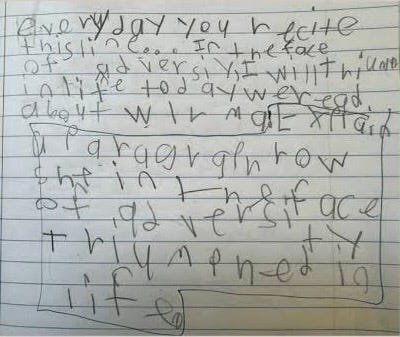 everyday you recite
this line... In the face
of adversiy, I will triump
in life today we read
about Wilma. Explain
in a paragraph how
she in the face
of adversity
triumphed in
life.